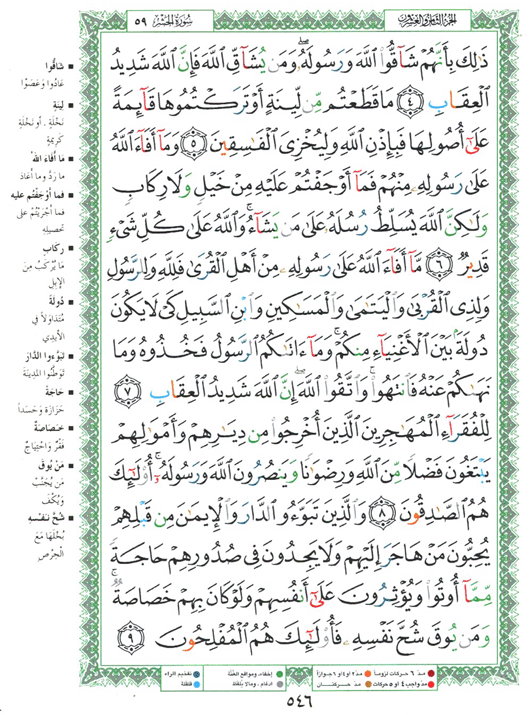 الجزء الثامن والعشرون
سورة الحشر ٥٩
ذَٰلِكَ بِأَنَّهُمْ شَاقُّوا۟ ٱللَّهَ وَرَسُولَهُۥ ۖ وَمَن يُشَآقِّ ٱللَّهَ فَإِنَّ ٱللَّهَ شَدِيدُ
ٱلْعِقَابِ ٤ مَا قَطَعْتُم مِّن لِّينَةٍ أَوْ تَرَكْتُمُوهَا قَآئِمَةً
عَلَىٰٓ أُصُولِهَا فَبِإِذْنِ ٱللَّهِ وَلِيُخْزِىَ ٱلْفَٰسِقِينَ ٥ وَمَآ أَفَآءَ ٱللَّهُ
عَلَىٰ رَسُولِهِۦ مِنْهُمْ فَمَآ أَوْجَفْتُمْ عَلَيْهِ مِنْ خَيْلٍ وَلَا رِكَابٍ
وَلَٰكِنَّ ٱللَّهَ يُسَلِّطُ رُسُلَهُۥ عَلَىٰ مَن يَشَآءُ ۚ وَٱللَّهُ عَلَىٰ كُلِّ شَىْءٍ
قَدِيرٌ ٦ مَّآ أَفَآءَ ٱللَّهُ عَلَىٰ رَسُولِهِۦ مِنْ أَهْلِ ٱلْقُرَىٰ فَلِلَّهِ وَلِلرَّسُولِ
وَلِذِى ٱلْقُرْبَىٰ وَٱلْيَتَٰمَىٰ وَٱلْمَسَٰكِينِ وَٱبْنِ ٱلسَّبِيلِ كَىْ لَا يَكُونَ
دُولَةًۢ بَيْنَ ٱلْأَغْنِيَآءِ مِنكُمْ ۚ وَمَآ ءَاتَىٰكُمُ ٱلرَّسُولُ فَخُذُوهُ وَمَا
نَهَىٰكُمْ عَنْهُ فَٱنتَهُوا۟ ۚ وَٱتَّقُوا۟ ٱللَّهَ ۖ إِنَّ ٱللَّهَ شَدِيدُ ٱلْعِقَابِ ٧
لِلْفُقَرَآءِ ٱلْمُهَٰجِرِينَ ٱلَّذِينَ أُخْرِجُوا۟ مِن دِيَٰرِهِمْ وَأَمْوَٰلِهِمْ
يَبْتَغُونَ فَضْلًا مِّنَ ٱللَّهِ وَرِضْوَٰنًا وَيَنصُرُونَ ٱللَّهَ وَرَسُولَهُۥٓ ۚ أُو۟لَٰٓئِكَ
هُمُ ٱلصَّٰدِقُونَ ٨ وَٱلَّذِينَ تَبَوَّءُو ٱلدَّارَ وَٱلْإِيمَٰنَ مِن قَبْلِهِمْ
يُحِبُّونَ مَنْ هَاجَرَ إِلَيْهِمْ وَلَا يَجِدُونَ فِى صُدُورِهِمْ حَاجَةً
مِّمَّآ أُوتُوا۟ وَيُؤْثِرُونَ عَلَىٰٓ أَنفُسِهِمْ وَلَوْ كَانَ بِهِمْ خَصَاصَةٌ ۚ
وَمَن يُوقَ شُحَّ نَفْسِهِۦ فَأُو۟لَٰٓئِكَ هُمُ ٱلْمُفْلِحُونَ ٩
شَاقُّوا
عَادُوا وَعَصَوْا
لِينَةٍ
نَخْلَةٍ . أو نَخْلَةٍ
كَرِيمَةٍ
مَا أفَاءَ اللهُ
مَا رَدَّ وَما أعَادَ
فما أوْجَفْتُم عليه
فما أجْرَيْتُمْ على
تحصيلِهِ
ركاب
مَا يُرْكَبُ مِنَ
الإبِل
دُولَةً
مُتَدَاوَلاً في
الأيدِي
تَبَوَّءوا الدَّارَ
تَوَطَّنُوا المَدِينَةَ
حَاجَةً
حَزَازَةً وَحَسَداً
خَصَاصَةٌ
فَقْرٌ وَاحْتِيَاجٌ
مَنْ يُوقَ
مَن يُجَنَّبْ
وَيُكْفَ
شُحَّ نَفْسِهِ
بُخْلَهَا مَعَ
الحِرْصِ
مدّ ٦ حركات لزوماً
مدّ ٢ أو ٤ أو ٦ جوازاً
إخفاء، ومواقع الغُنَّة
تفخيم الراء
مدّ واجب ٤ أو ٥ حركات
مدّ حركتان
إدغام، وما لا يُلفظ
قلقلة
٥٤٦